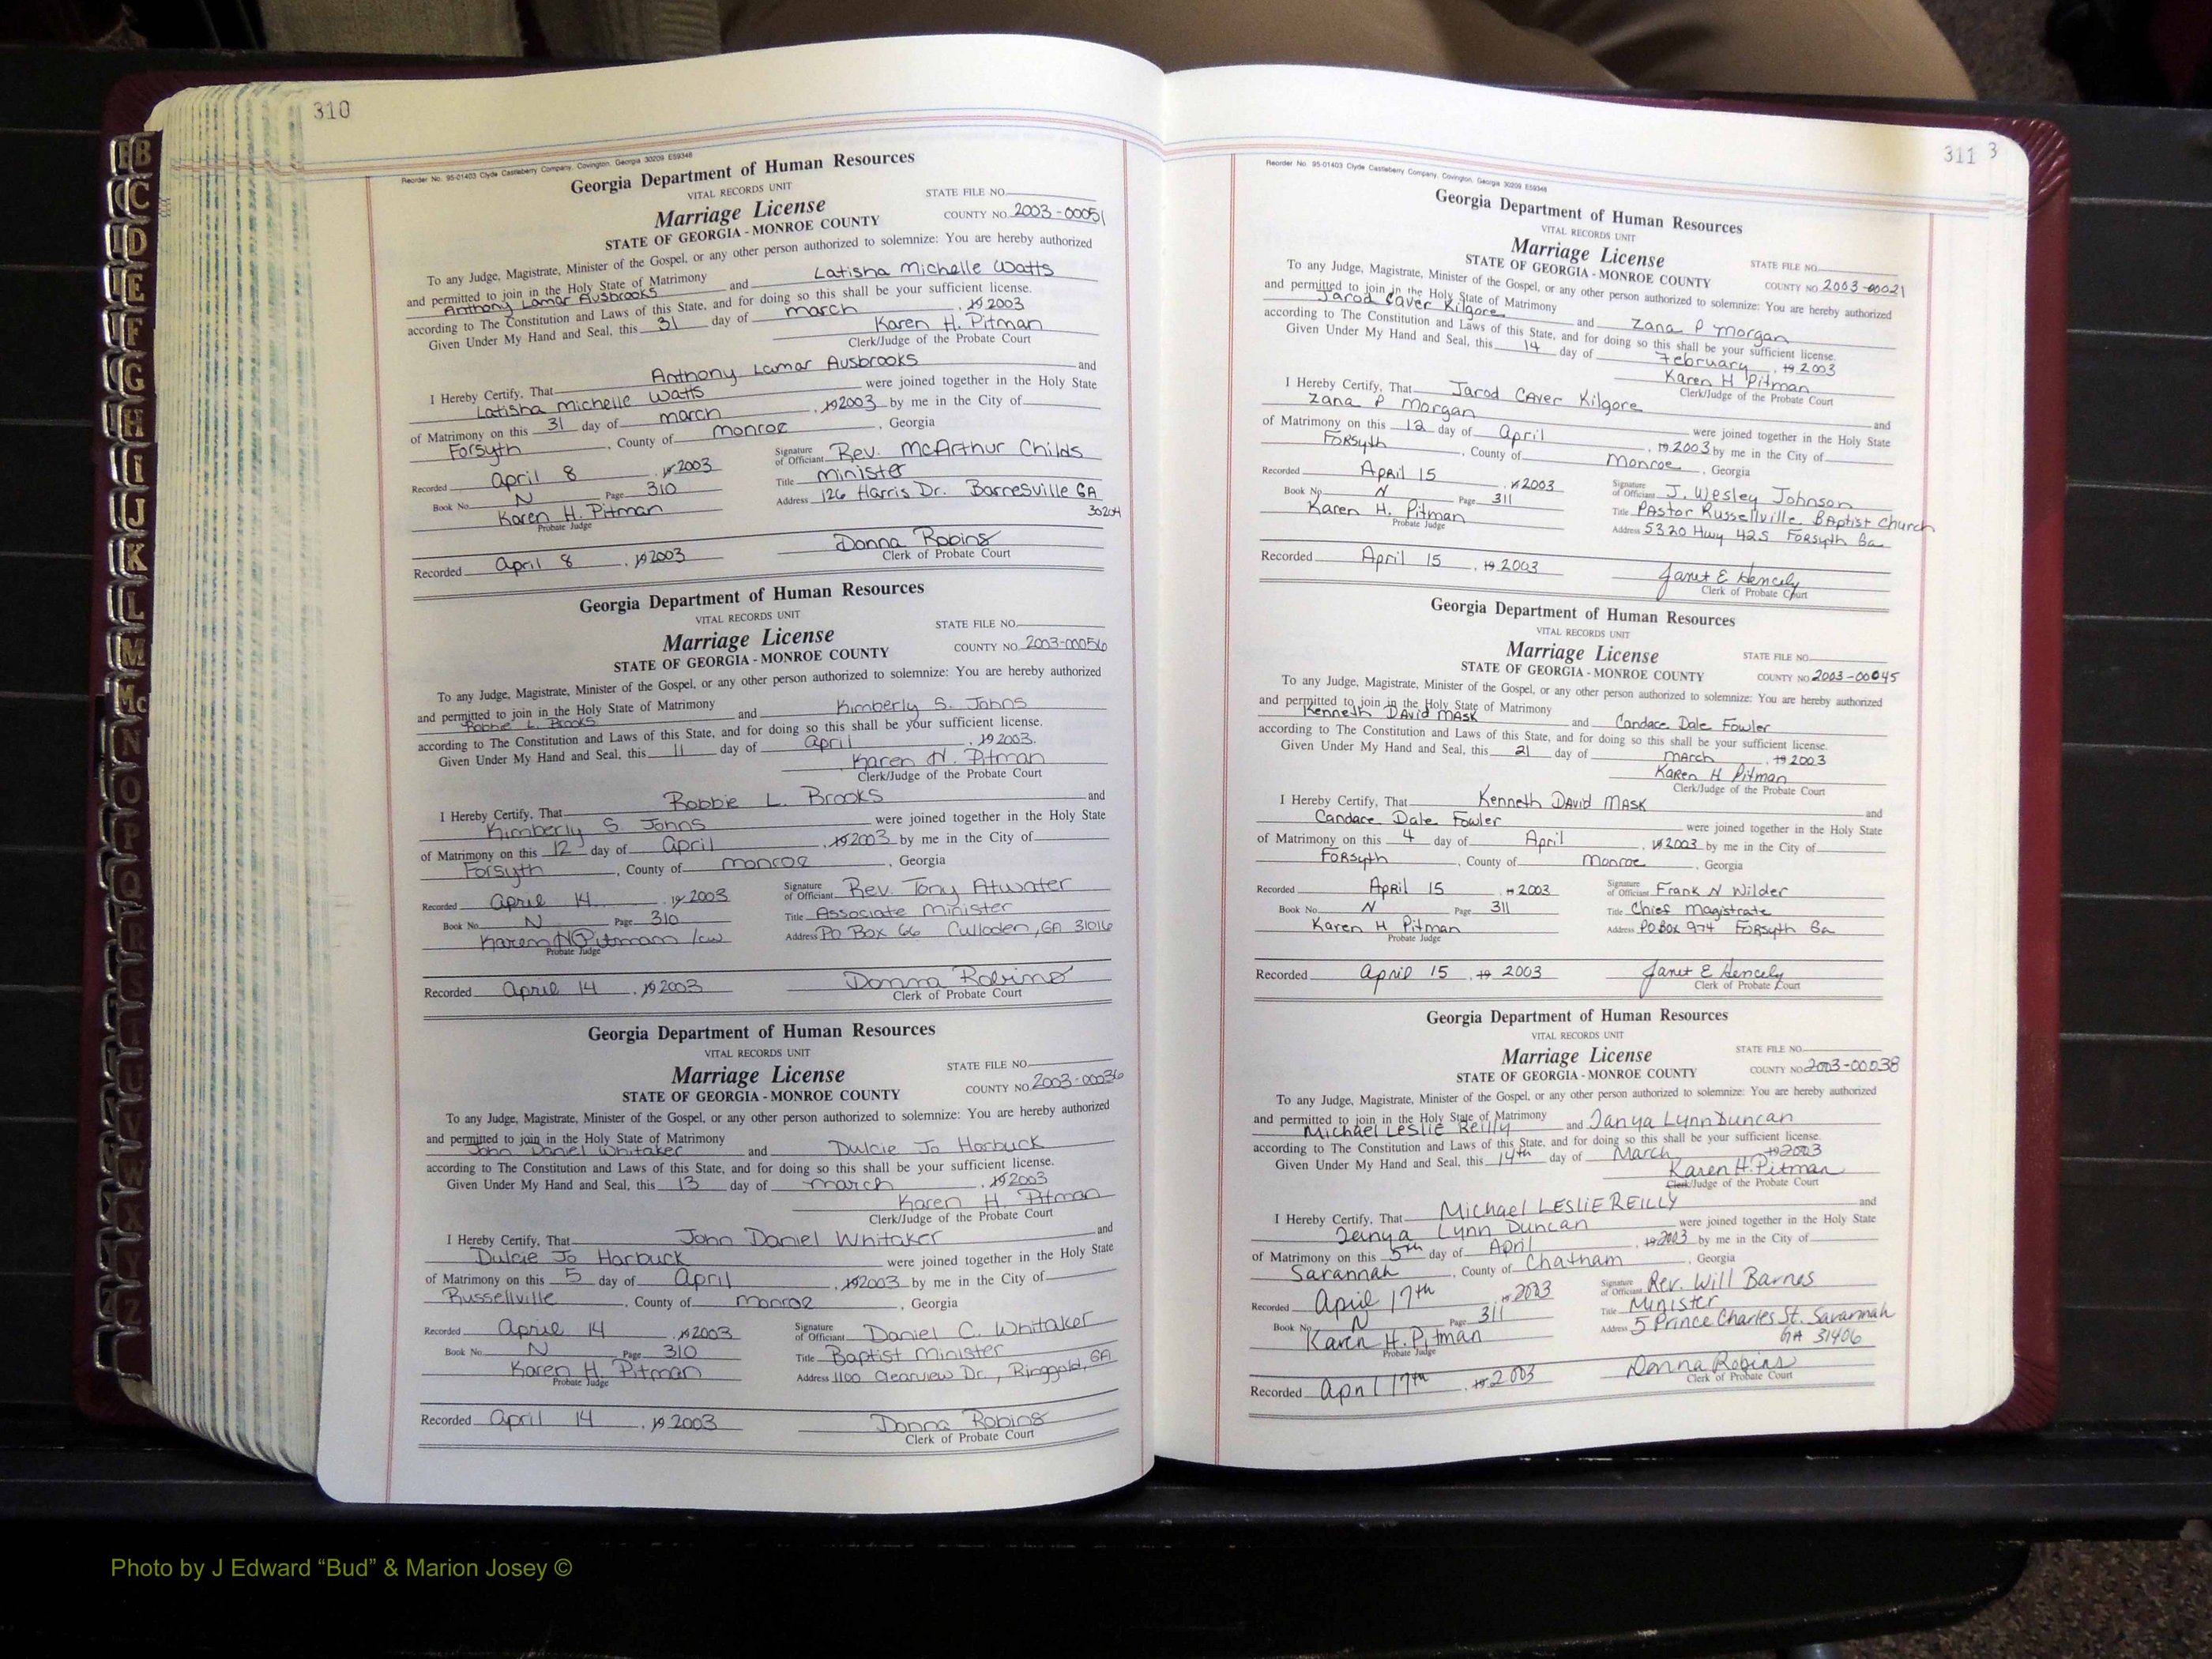 310
Reorder No. 95-01403 Clyde Castleberry Company, Covington, Georgia 30209 E59348
Georgia Department of Human Resources
VITAL RECORDS UNIT
STATE FILE NO.
Marriage License
COUNTY NO. 2003-00051
STATE OF GEORGIA - MONROE COUNTY
To any Judge, Magistrate, Minister of the Gospel, or any other person authorized to solemnize: You are hereby authorized
and permitted to join in the Holy State of Matrimony
Anthony Lamar Ausbrooks and Latisha Michelle Watts
according to The Constitution and Laws of this State, and for doing so this shall be your sufficient license.
Given Under My Hand and Seal, this 31 day of march , 19 2003
Karen H. Pitman
Clerk/Judge of the Probate Court
I Hereby Certify, That Anthony Lamar Ausbrooks and
Latisha Michelle Watts were joined together in the Holy State
of Matrimony on this 31 day of march , 19 2003 by me in the City of
Forsyth , County of Monroe , Georgia
Recorded April 8 , 19 2003
Signature of Officiant Rev. McArthur Childs
Book No. N Page 310
Title minister
Karen H. Pitman
Probate Judge
Address 126 Harris Dr. Barnesville GA
30204
Recorded April 8 , 19 2003
Donna Robins
Clerk of Probate Court
Georgia Department of Human Resources
VITAL RECORDS UNIT
STATE FILE NO.
Marriage License
COUNTY NO. 2003-00056
STATE OF GEORGIA - MONROE COUNTY
To any Judge, Magistrate, Minister of the Gospel, or any other person authorized to solemnize: You are hereby authorized
and permitted to join in the Holy State of Matrimony
Robbie L. Brooks and Kimberly S. Johns
according to The Constitution and Laws of this State, and for doing so this shall be your sufficient license.
Given Under My Hand and Seal, this 11 day of April , 19 2003
Karen H. Pitman
Clerk/Judge of the Probate Court
I Hereby Certify, That Robbie L. Brooks and
Kimberly S. Johns were joined together in the Holy State
of Matrimony on this 12 day of April , 19 2003 by me in the City of
Forsyth , County of Monroe , Georgia
Recorded April 14 , 19 2003
Signature of Officiant Rev. Tony Atwater
Book No. N Page 310
Title Associate Minister
Karen H Pitman /cw
Probate Judge
Address PO Box 66 Culloden, GA 31016
Recorded April 14 , 19 2003
Donna Robins
Clerk of Probate Court
Georgia Department of Human Resources
VITAL RECORDS UNIT
STATE FILE NO.
Marriage License
COUNTY NO. 2003-00036
STATE OF GEORGIA - MONROE COUNTY
To any Judge, Magistrate, Minister of the Gospel, or any other person authorized to solemnize: You are hereby authorized
and permitted to join in the Holy State of Matrimony
John Daniel Whitaker and Dulcie Jo Harbuck
according to The Constitution and Laws of this State, and for doing so this shall be your sufficient license.
Given Under My Hand and Seal, this 13 day of march , 19 2003
Karen H. Pitman
Clerk/Judge of the Probate Court
I Hereby Certify, That John Daniel Whitaker and
Dulcie Jo Harbuck were joined together in the Holy State
of Matrimony on this 5 day of April , 19 2003 by me in the City of
Russellville , County of Monroe , Georgia
Recorded April 14 , 19 2003
Signature of Officiant Daniel C. Whitaker
Book No. N Page 310
Title Baptist Minister
Karen H. Pitman
Probate Judge
Address 1100 Clearview Dr., Ringgold, GA
Recorded April 14 , 19 2003
Donna Robins
Clerk of Probate Court
311 3
Reorder No. 95-01403 Clyde Castleberry Company, Covington, Georgia 30209 E59348
Georgia Department of Human Resources
VITAL RECORDS UNIT
Marriage License
STATE FILE NO.
STATE OF GEORGIA - MONROE COUNTY
COUNTY NO. 2003-00021
To any Judge, Magistrate, Minister of the Gospel, or any other person authorized to solemnize: You are hereby authorized
and permitted to join in the Holy State of Matrimony
Jarod Caver Kilgore and Zana P Morgan
according to The Constitution and Laws of this State, and for doing so this shall be your sufficient license.
Given Under My Hand and Seal, this 14 day of February , 19 2003
Karen H Pitman
Clerk/Judge of the Probate Court
I Hereby Certify, That Jarod Caver Kilgore and
Zana P Morgan were joined together in the Holy State
of Matrimony on this 12 day of April , 19 2003 by me in the City of
Forsyth , County of Monroe , Georgia
Recorded April 15 , 19 2003
Signature of Officiant J. Wesley Johnson
Book No. N Page 311
Title Pastor Russellville Baptist Church
Karen H. Pitman
Probate Judge
Address 5320 Hwy 42S Forsyth Ga
Recorded April 15 , 19 2003
Janet E Hencely
Clerk of Probate Court
Georgia Department of Human Resources
VITAL RECORDS UNIT
Marriage License
STATE FILE NO.
STATE OF GEORGIA - MONROE COUNTY
COUNTY NO 2003-00045
To any Judge, Magistrate, Minister of the Gospel, or any other person authorized to solemnize: You are hereby authorized
and permitted to join in the Holy State of Matrimony
Kenneth David Mask and Candace Dale Fowler
according to The Constitution and Laws of this State, and for doing so this shall be your sufficient license.
Given Under My Hand and Seal, this 21 day of March , 19 2003
Karen H Pitman
Clerk/Judge of the Probate Court
I Hereby Certify, That Kenneth David Mask and
Candace Dale Fowler were joined together in the Holy State
of Matrimony on this 4 day of April , 19 2003 by me in the City of
Forsyth , County of Monroe , Georgia
Recorded April 15 , 19 2003
Signature of Officiant Frank N Wilder
Book No. N Page 311
Title Chief Magistrate
Karen H Pitman
Probate Judge
Address PO Box 974 Forsyth Ga
Recorded April 15 , 19 2003
Janet E Hencely
Clerk of Probate Court
Georgia Department of Human Resources
VITAL RECORDS UNIT
Marriage License
STATE FILE NO.
STATE OF GEORGIA - MONROE COUNTY
COUNTY NO. 2003-00038
To any Judge, Magistrate, Minister of the Gospel, or any other person authorized to solemnize: You are hereby authorized
and permitted to join in the Holy State of Matrimony
Michael Leslie Reilly and Tanya Lynn Duncan
according to The Constitution and Laws of this State, and for doing so this shall be your sufficient license.
Given Under My Hand and Seal, this 14th day of March 19 2003
Karen H. Pitman
Clerk/Judge of the Probate Court
I Hereby Certify, That Michael LESLIE REILLY and
Tanya Lynn Duncan were joined together in the Holy State
of Matrimony on this 5th day of April , 19 2003 by me in the City of
Savannah , County of Chatham , Georgia
Recorded April 17th , 19 2003
Signature of Officiant Rev. Will Barnes
Book No. N Page 311
Title Minister
Karen H. Pitman
Probate Judge
Address 5 Prince Charles St. Savannah
GA 31406
Recorded April 17th , 19 2003
Donna Robins
Clerk of Probate Court
B
C
D
E
F
G
H
I
J
K
L
M
Mc
N
O
P
Q
R
S
T
U
V
W
X
Y
Z
Photo by J Edward “Bud” & Marion Josey ©